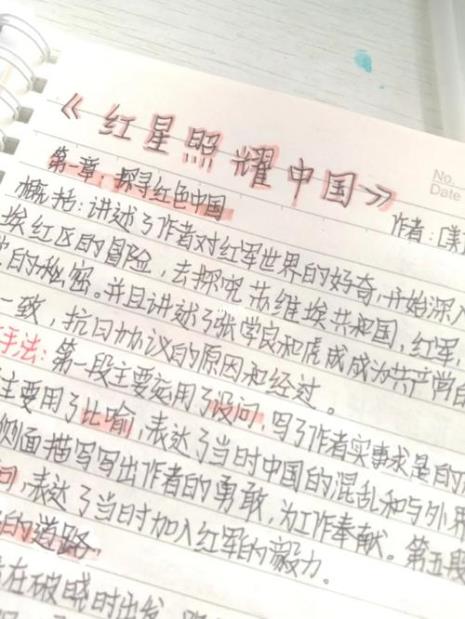 《红星照耀中国》
No.
Date
第一章：探寻红色中国
作者：[美
概括：讲述了作者对红军世界的好奇，开始深入
埃红区的冒险，去探究苏维埃共和国，红军，
的秘密。并且讲述了张学良和虎成成为共产党的
一致，抗日协议的原因和经过。
手法：第一段主要运用了设问，写了作者实事求是的
主要用了比喻，表达了当时中国的混乱和与外界
侧面描写写出作者的勇敢，为工作奉献。第五段
问，表达了当时加入红军的毅力。
的道路
在破晓时出发